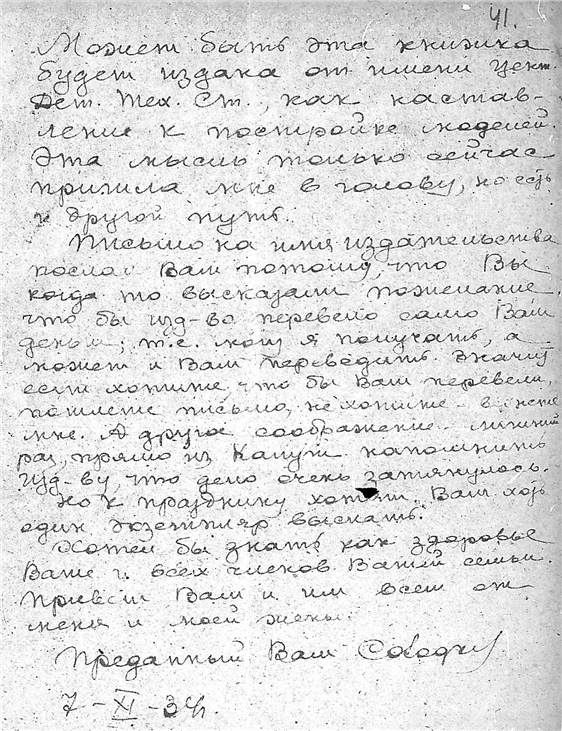 41.
Может быть эта книжка
будет издана от имени Цент.
Дет. Тех. Ст., как настав-
ление к постройке моделей.
Эта мысль только сейчас
пришла мне в голову, но есть
и другой путь.
Письмо на имя издательства
послал Вам потому, что Вы
когда то высказали пожелание
что бы изд-во перевело само Вам
деньги, т.е. могу я получать, а
может и Вам переводить. Значит
если хотите, что бы Вам перевели,
пошлите письмо, не хотите
мне. А другое соображение - лишний
раз, прямо из Калуги напомнить
изд-ву, что дело очень затянулось.
Но к празднику хотят Вам хоть
один экземпляр выслать.
Хотел бы знать как здоровье
Ваше и всех членов Вашей семьи.
Привет Вам и им всем от
меня и моей жены.
Преданный Вам
7 - XI - 34г.